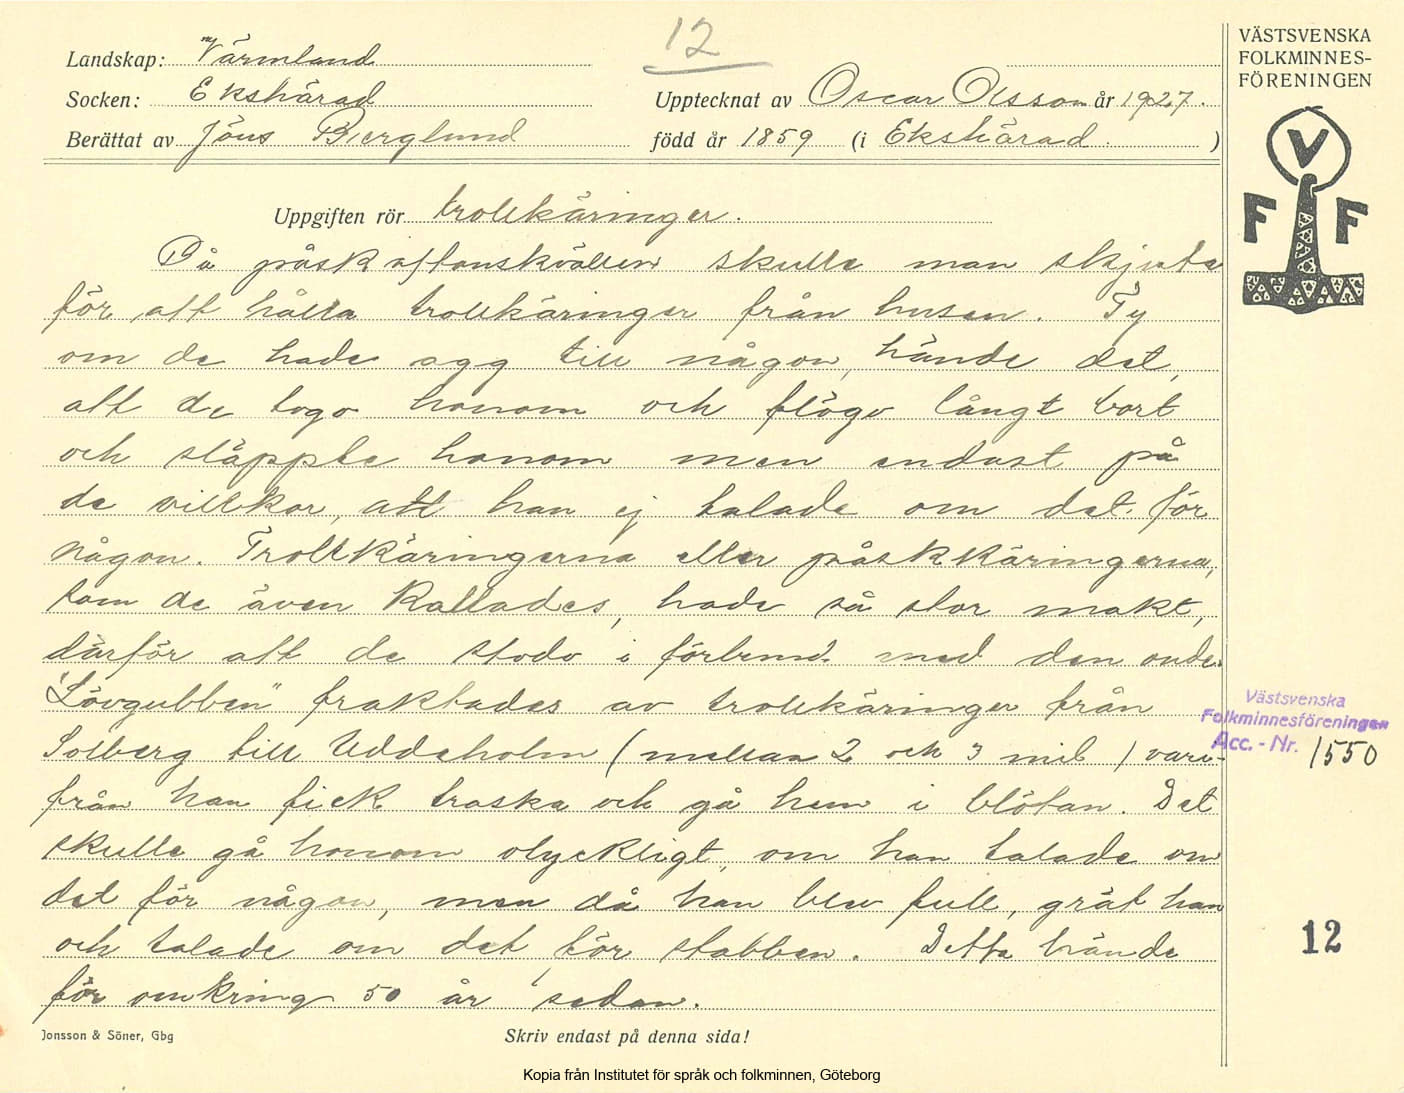 12
VÄSTSVENSKA
FOLKMINNES-
FÖRENINGEN
Landskap: Värmland
Socken: Ekshärad
Upptecknat av Oscar Olsson år 1927.
Berättat av Jöns Berglund
född år 1859 (i Ekshärad )
V
F F
Uppgiften rör trollkäringer.
På påskaftonskvällen skulle man skjuta
för att hålla trollkäringer från husen. Ty
om de hade agg till någon, hände det,
att de togo honom och flögo långt bort
och släppte honom men endast på
de villkor, att han ej talade om det för
någon. Trollkäringerna eller påskkäringerna,
som de även kallades, hade så stor makt,
därför att de stodo i förbund med den onde.
"Lövgubben" fraktades av trollkäringer från
Solberg till Uddeholm (mellan 2 och 3 mil) vari-
från han fick traska och gå hem i blötan. Det
skulle gå honom olyckligt, om han talade om
det för någon, men då han blev full, grät han
och talade om det för stabben. Detta hände
för omkring 50 år sedan.
Västsvenska
Folkminnesföreningen
Acc. - Nr. 1550
12
Jonsson & Söner, Gbg
Skriv endast på denna sida!
Kopia från Institutet för språk och folkminnen, Göteborg